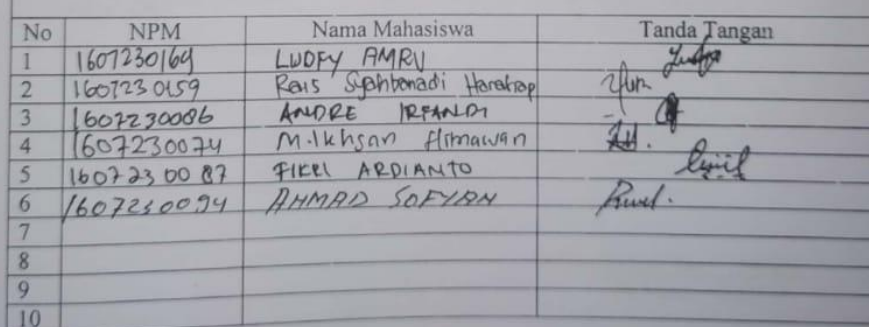 No NPM Nama Mahasiswa Tanda Tangan
1 1607230164 LUDFY AMRU
2 1607230159 Rais Syahbanadi Harahap
3 1607230086 ANDRE IRFANDI
4 1607230074 M.Ikhsan Himawan
5 1607230087 FIKRI ARDIANTO
6 1607230094 AHMAD SOFYAN
7
8
9
10